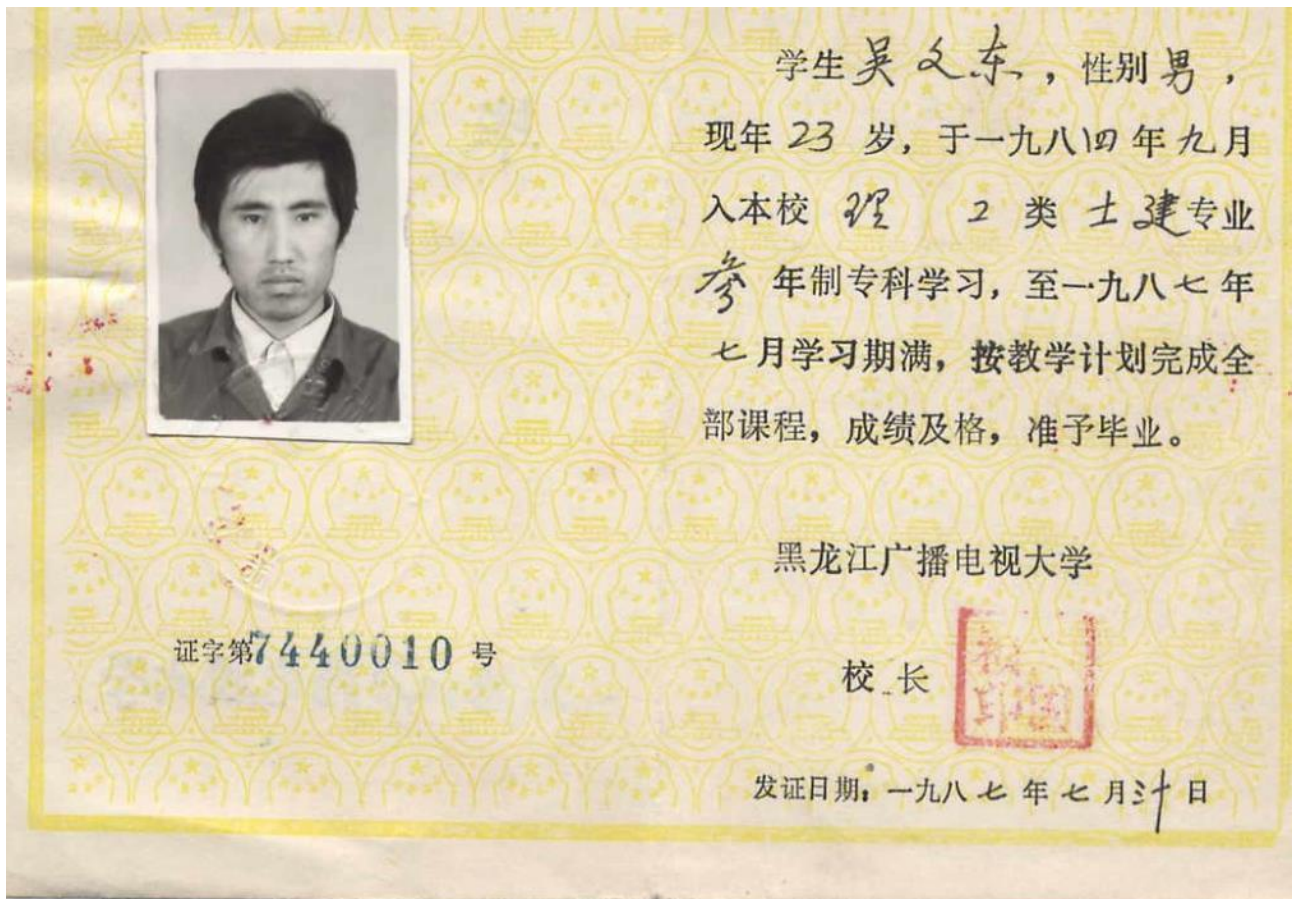 学生吴文东，性别男，
现年23岁，于一九八四年九月
入本校 理 工 类 土建专业
叁 年制专科学习，至一九八七年
七月学习期满，按教学计划完成全
部课程，成绩及格，准予毕业。
黑龙江广播电视大学
证字第7440010号
校长
发证日期：一九八七年七月三十日